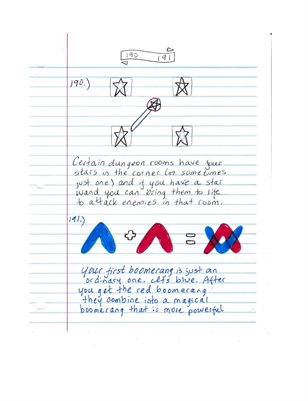 190 191
190.)
Certain dungeon rooms have four
stars in the corner (or sometimes
just one) and if you have a star
wand you can bring them to life
to attack enemies in that room.
191.)
Your first boomerang is just an
ordinary one. It's blue. After
you get the red boomerang
they combine into a magical
boomerang that is more powerful